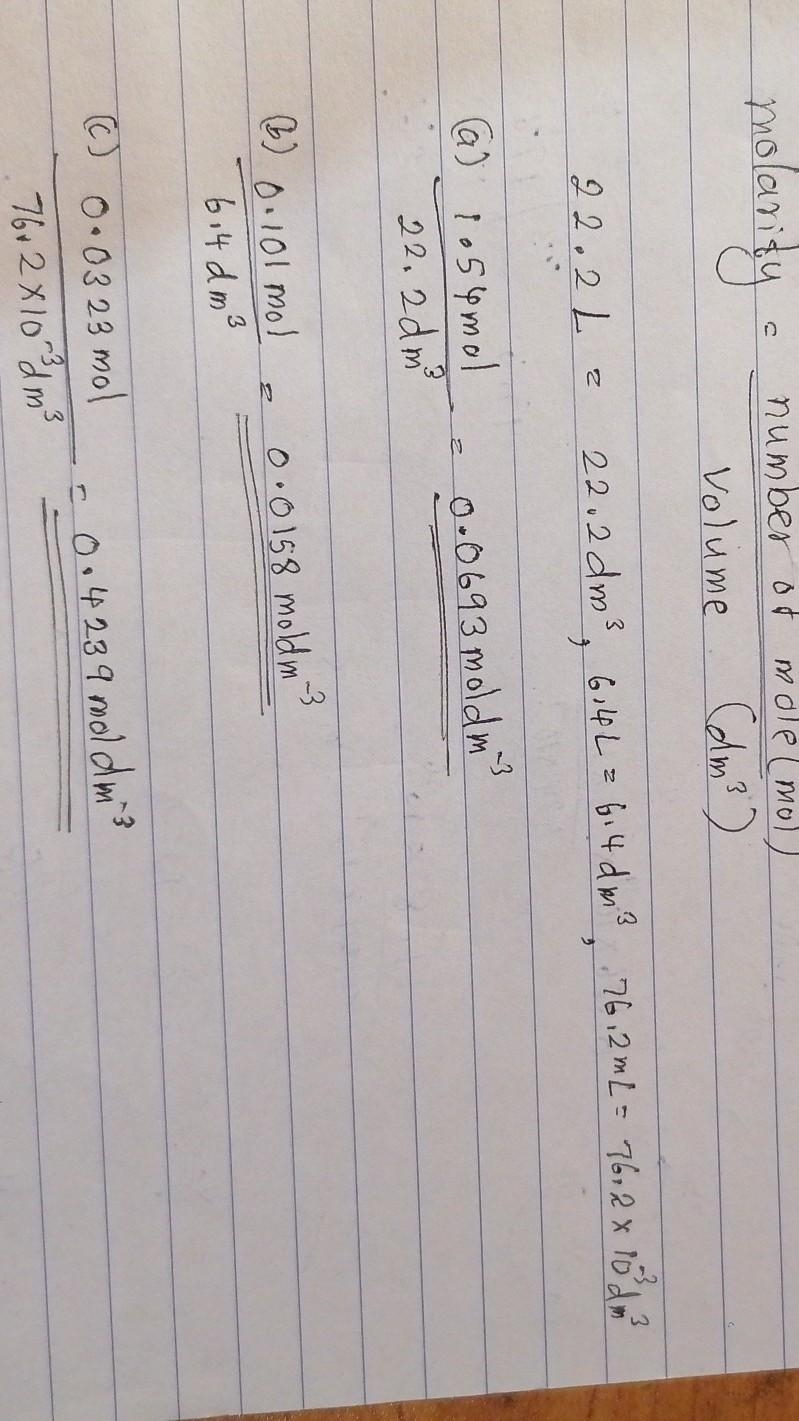 molarity = number of mole (mol)
volume (dm³)
22.2L = 22.2dm³, 6.4L = 6.4dm³, 76.2mL = 76.2 × 10⁻³dm³
(a) 1.54mol
22.2dm³
= 0.0693moldm⁻³
(b) 0.101mol
6.4dm³
= 0.0158moldm⁻³
(c) 0.0323mol
76.2×10⁻³dm³
= 0.4239moldm⁻³